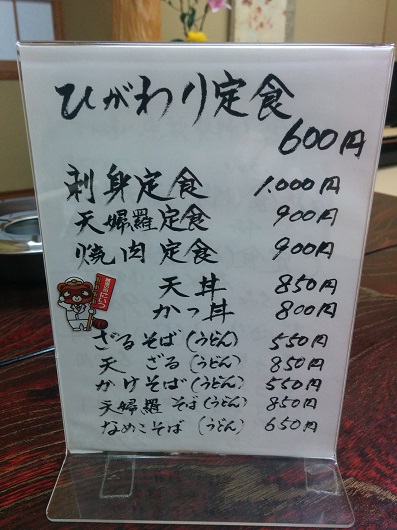 ひがわり定食
600円
刺身定食 1,000円
天婦羅定食 900円
焼肉定食 900円
天丼 850円
かつ丼 800円
ざるそば(うどん) 550円
天ざる(うどん) 850円
かけそば(うどん) 550円
天婦羅そば(うどん) 850円
なめこそば(うどん) 650円